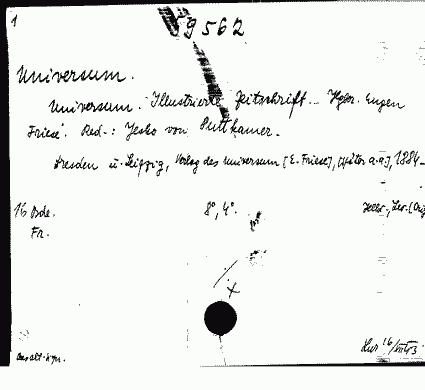 1
59562
Universum.
Universum. Illustrierte Zeitschrift... Hgbr. Eugen
Friese. Red.: Jesko von Puttkamer.
Dresden u. Leipzig, Verlag des Universum [E. Friese], (später a.a.), 1884-
16 Bde. 8°, 4°.
Fr.